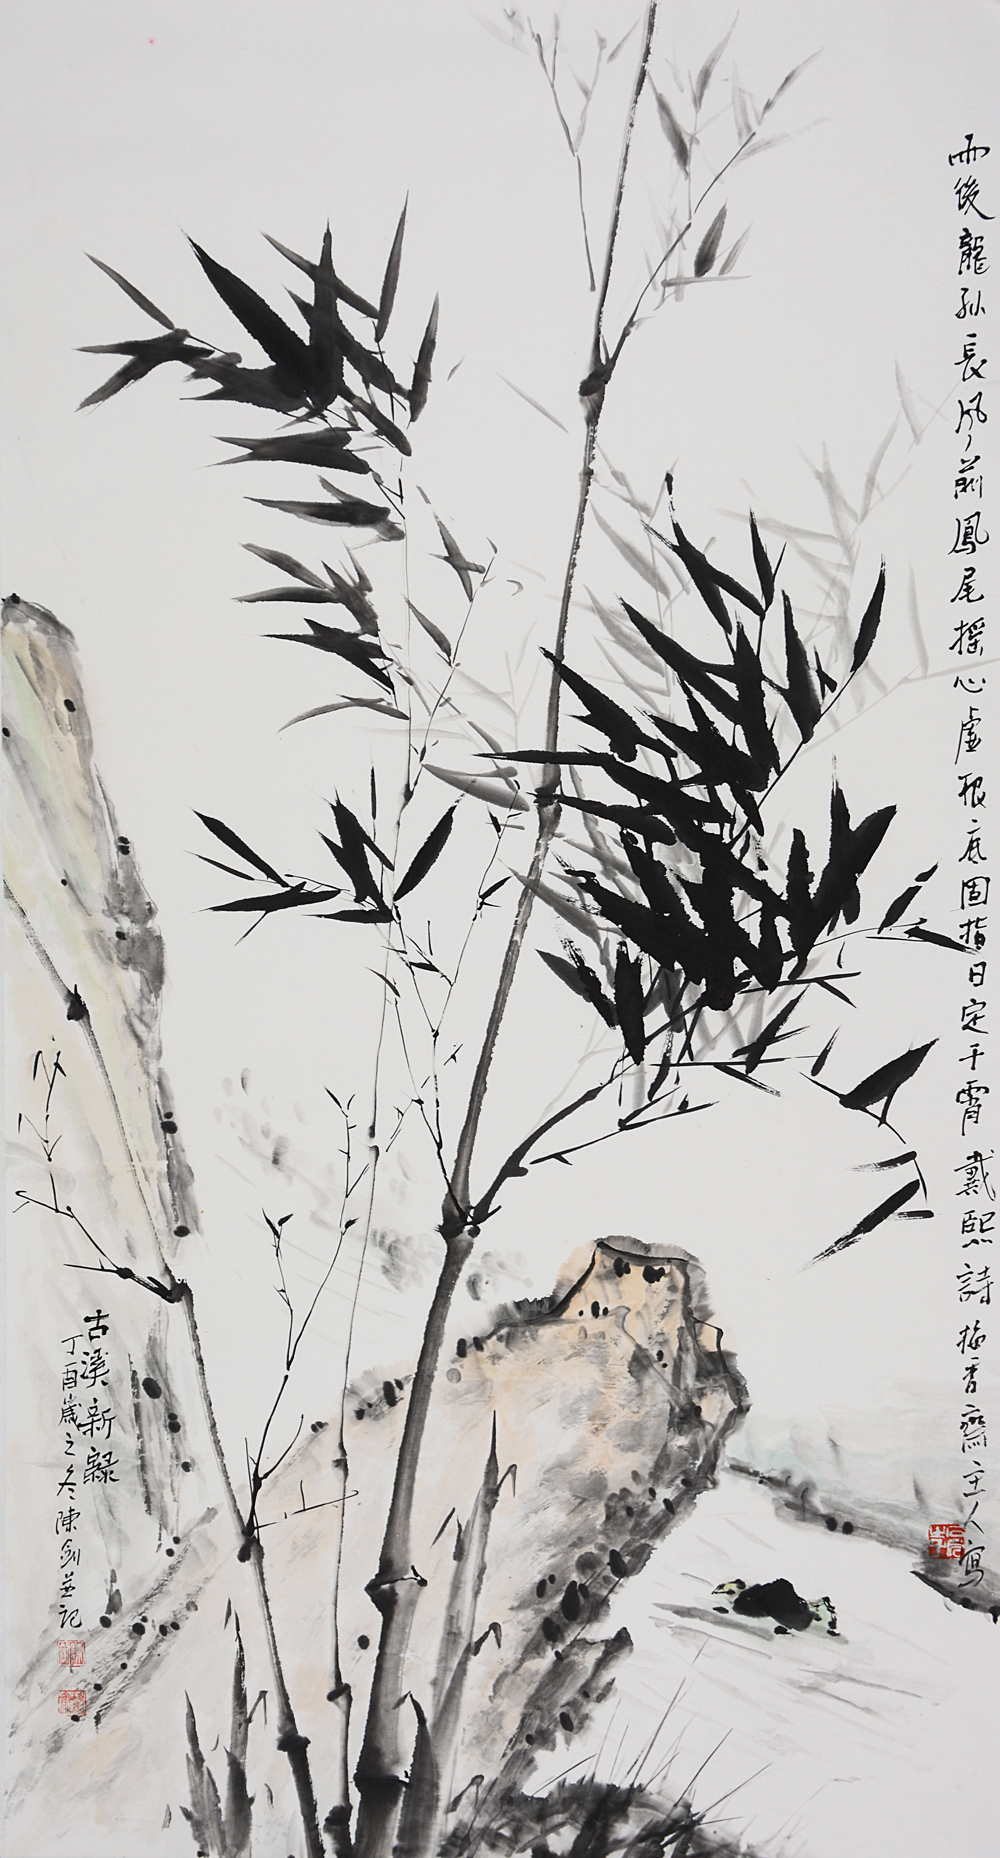 雨後龍孫長風前鳳尾搖心虛根底固指日定干霄戴熙詩梅香齋主人寫
古溪新綠
丁酉歲之冬陳劍並記